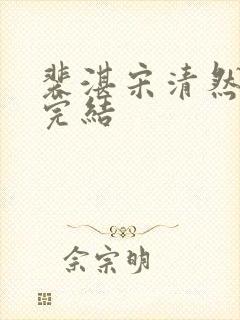 裴湛宋清然
完结
佘宗明